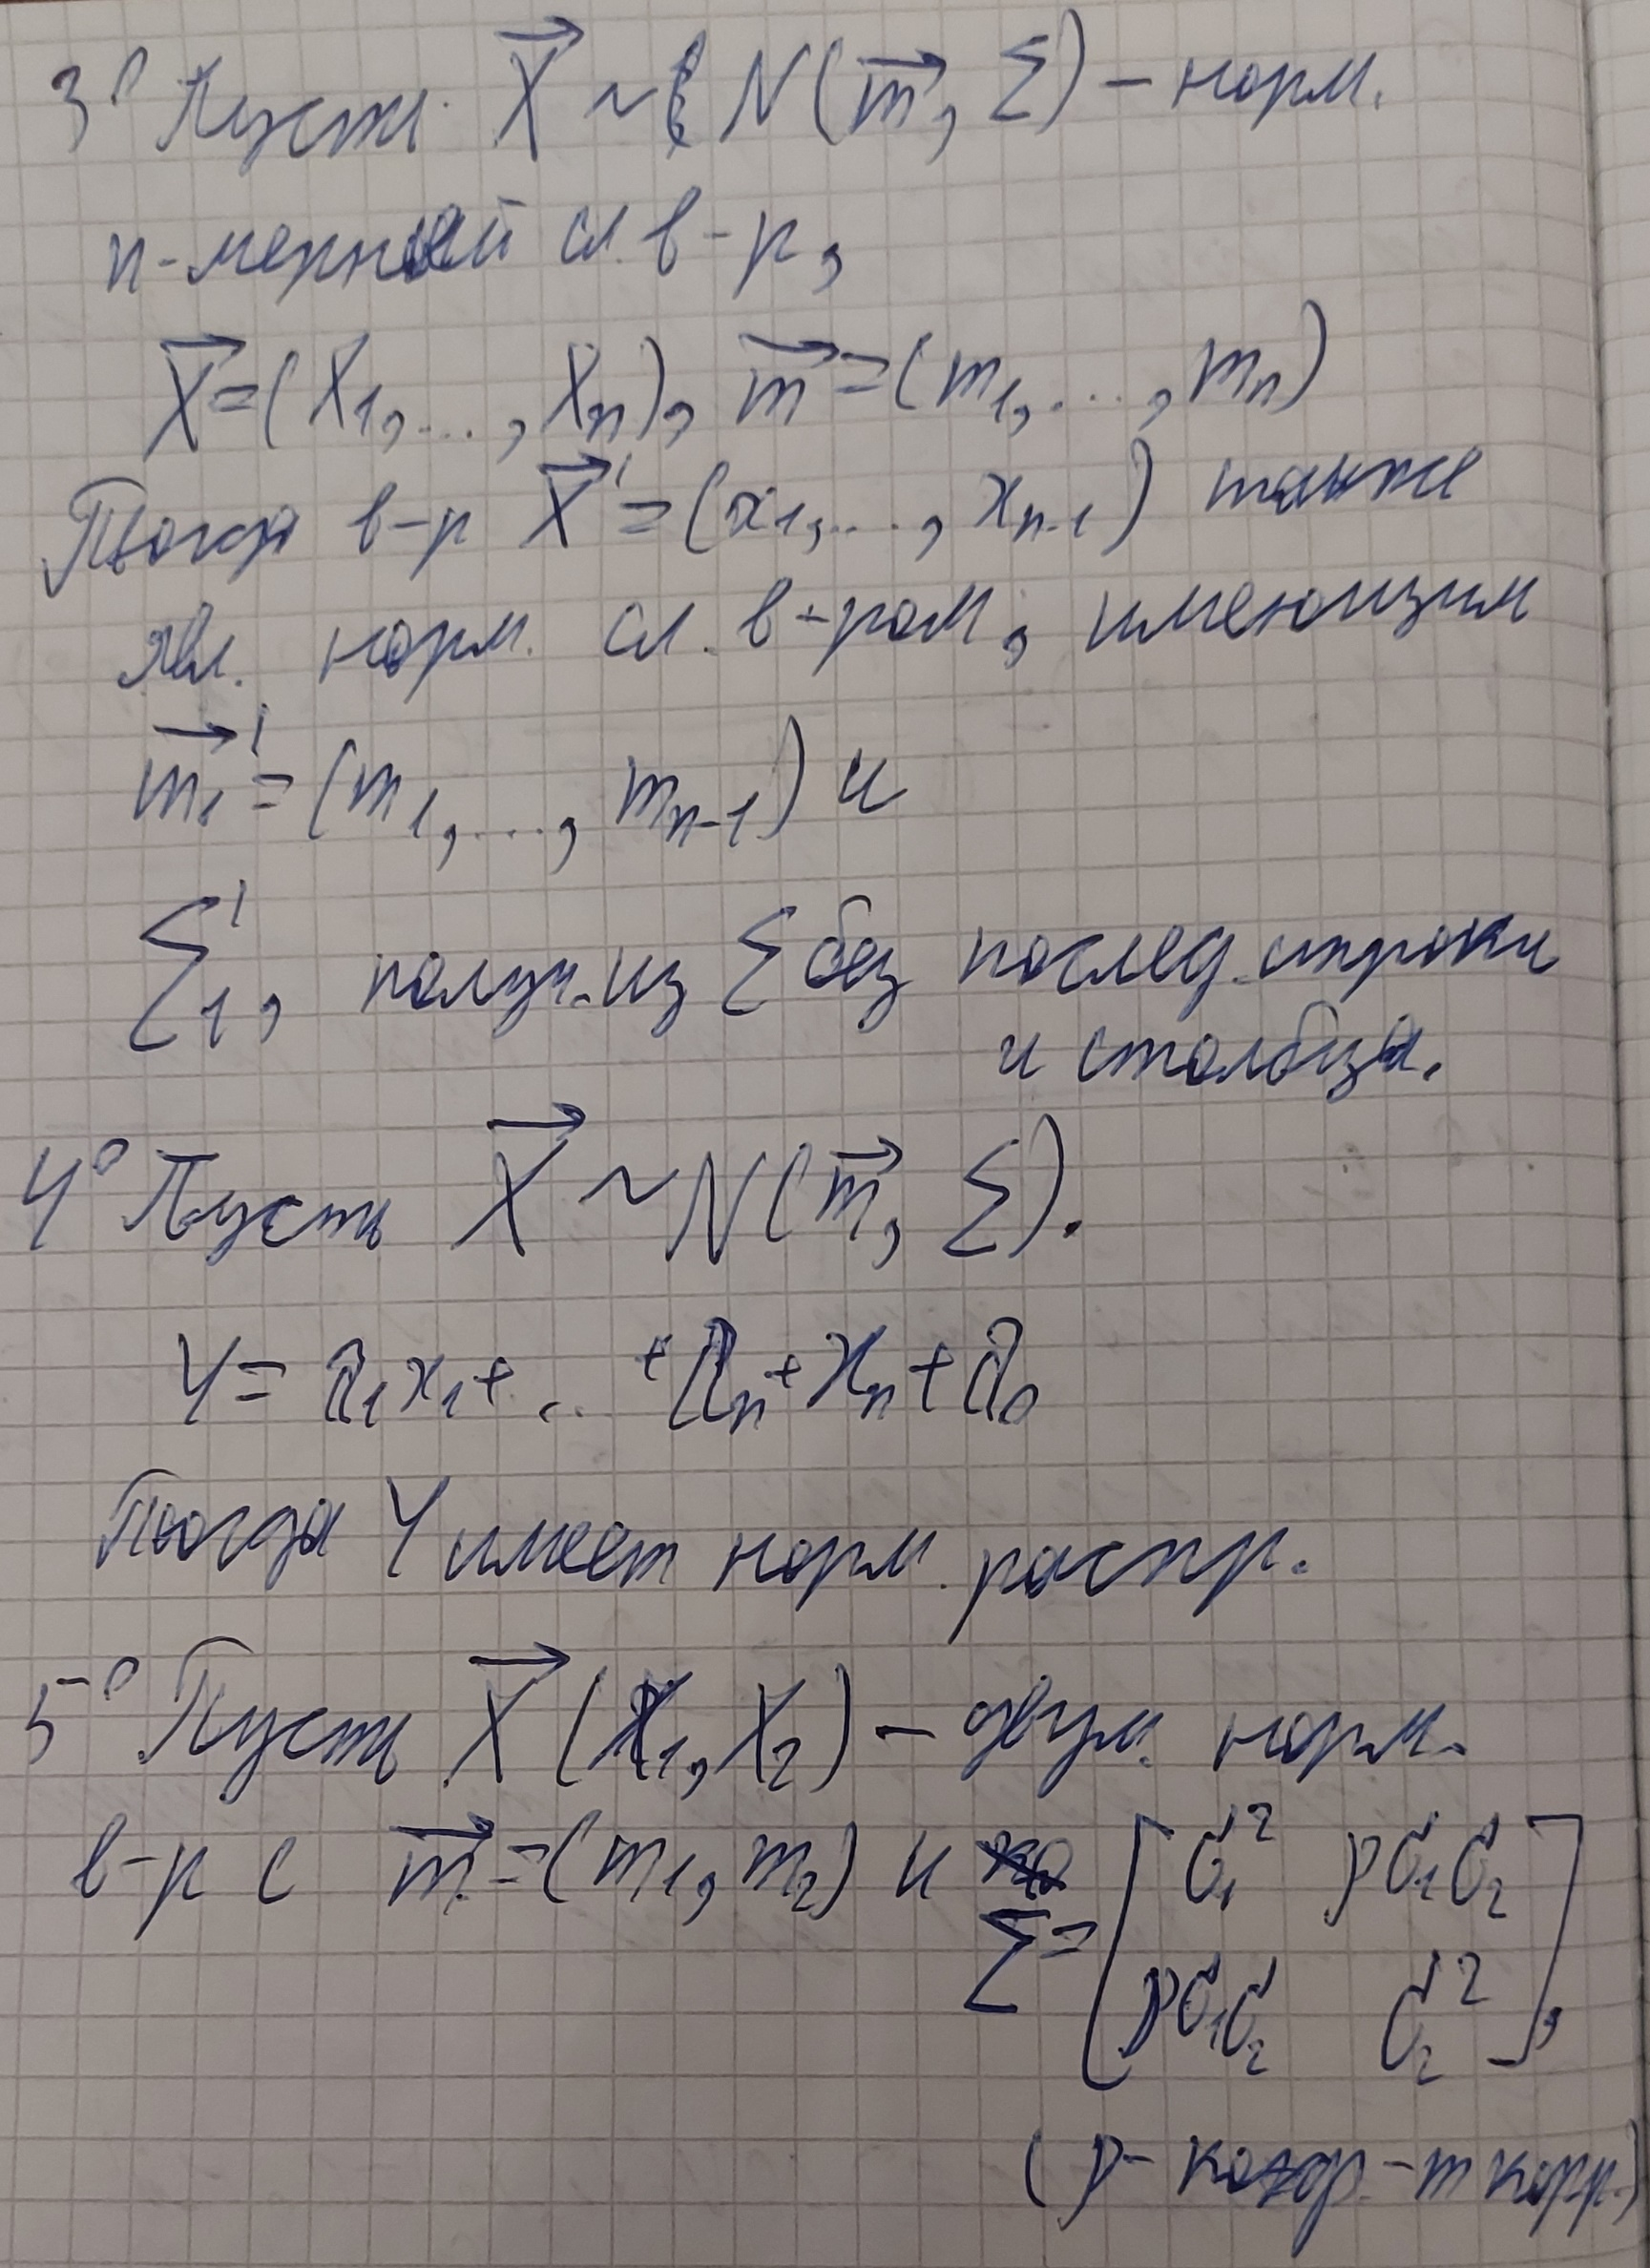 3° Пусть X⃗ ~ N(m⃗, Σ) – норм.
n-мерный сл. в-р,
X⃗=(X₁,...,Xₙ), m⃗=(m₁,...,mₙ)
Тогда в-р X⃗'=(x₁,...,xₙ₋₁) также
явл. норм. сл. в-ром, имеющим
m⃗₁'=(m₁,...,mₙ₋₁) и
Σ₁', получ. из Σ без послед. строки
и столбца.
4° Пусть X⃗ ~ N(m⃗, Σ).
Y= a₁x₁+...+aₙ+xₙ+a₀
Тогда Y имеет норм. распр.
5° Пусть X⃗ (X₁, X₂) – двум. норм.
в-р с m⃗=(m₁, m₂) и Σ= [σ₁² ρσ₁σ₂
ρσ₁σ₂ σ₂²],
(ρ – коэф-т корр.)